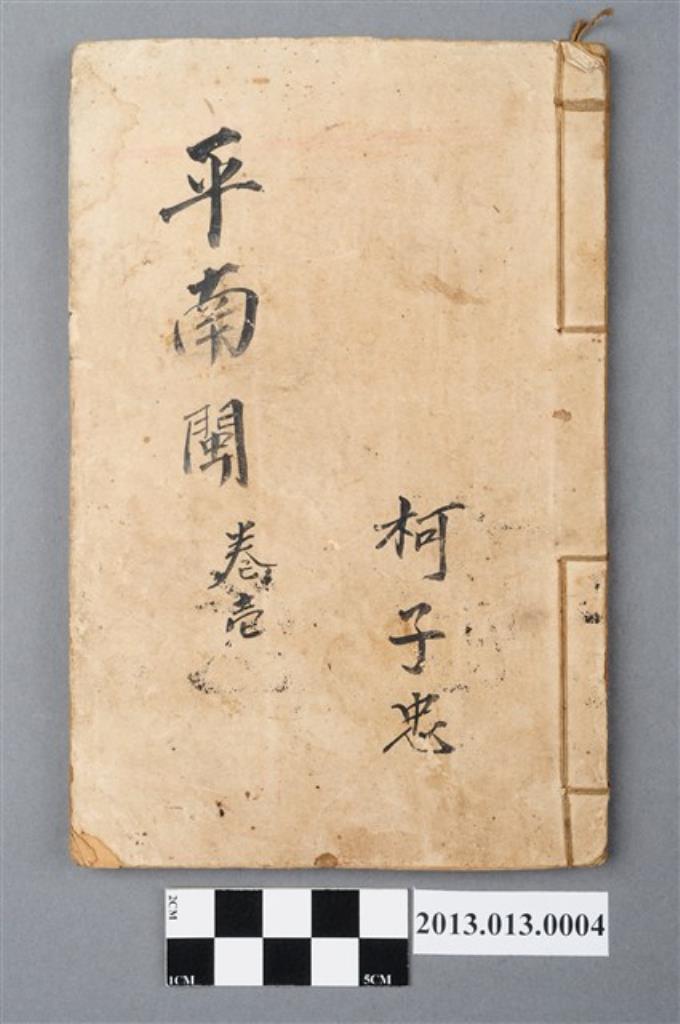 平南閩 卷壱
柯子忠
2CM
1CM
5CM
2013.013.0004